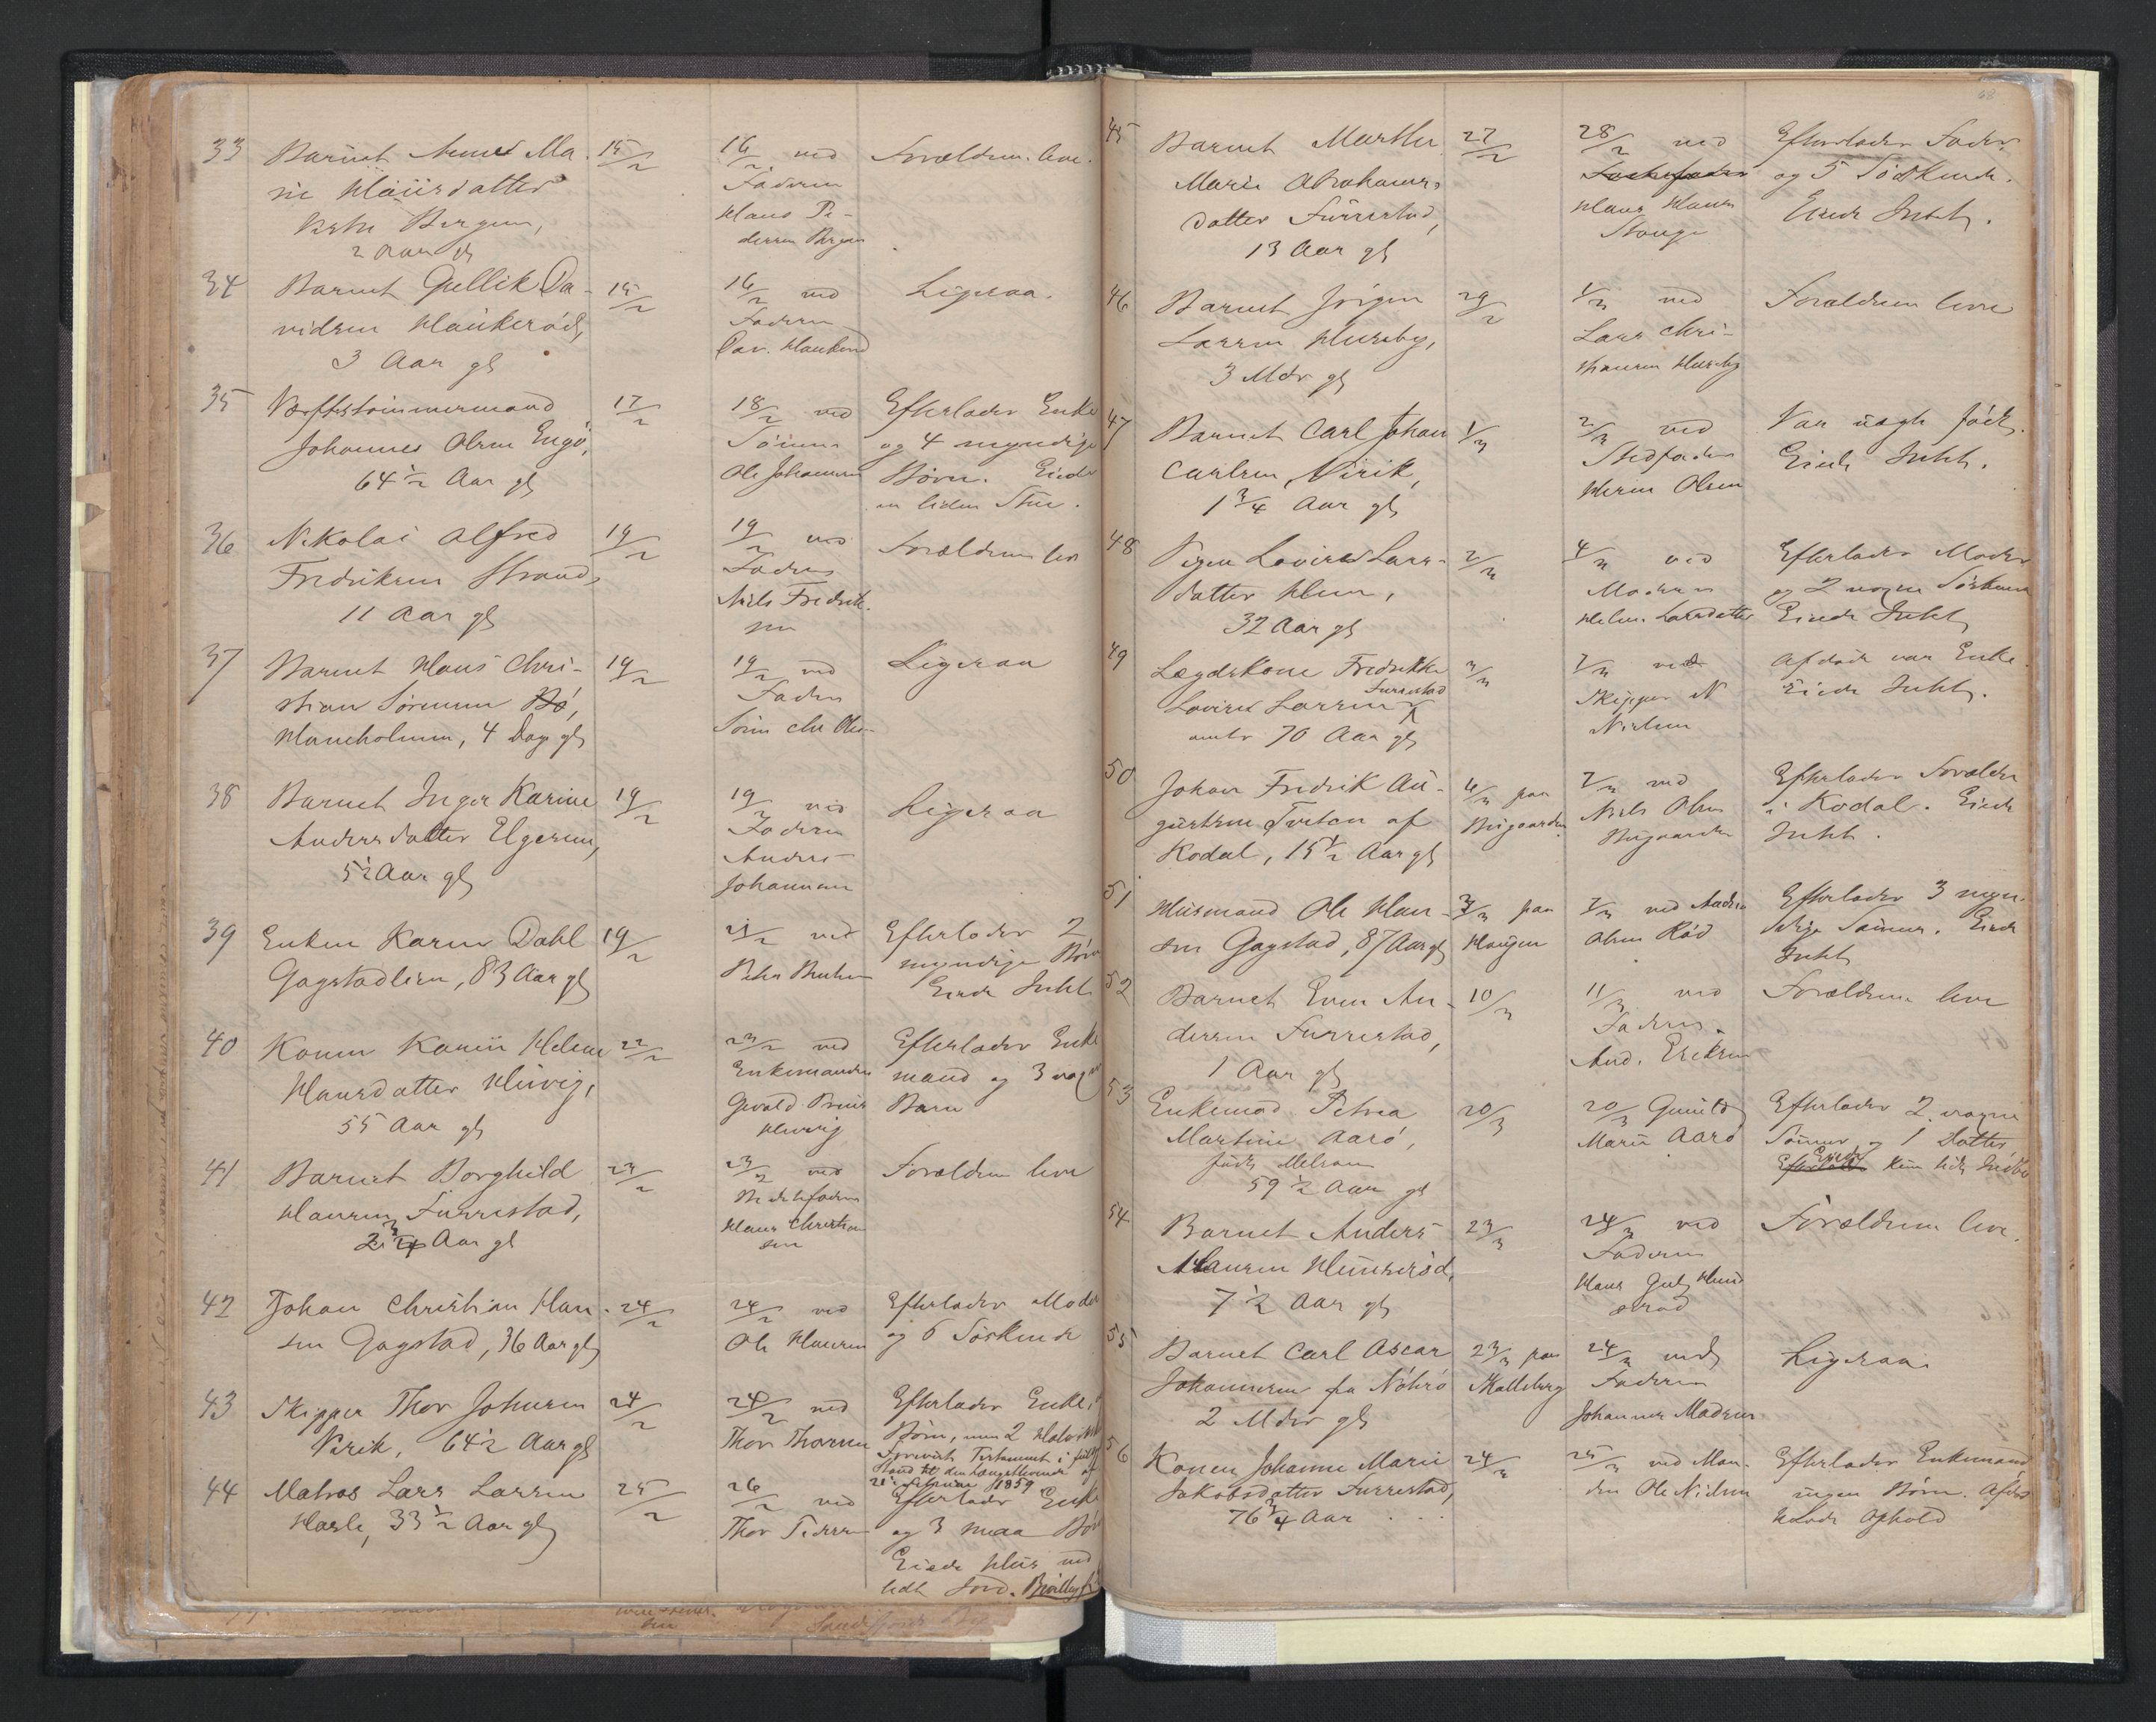 33 Barnet Anne Ma- 15/2 16/2 ved Forældrene leve.
rie Hansdatter Faderen
Bergan, Hans Pe-
2 Aar gl dersen Bergan
34 Barnet Gullik Da- 15/2 16/2 ved Ligesaa.
vidsen Haukerød, Faderen
3 Aar gl Dav. Haukerød
35 Værftstømmermand 17/2 18/2 ved Efterlader Enke
Johannes Olsen Engø, Sønnen og 4 myndige
64 1/2 Aar gl Ole Johannesen Børn. Eiede
en liden Stue.
36 Nikolai Alfred 19/2 19/2 ved Forældrene leve
Fredriksen Strand, Faderen
11 Aar gl Niels Fredrik-
sen
37 Barnet Hans Chri- 19/2 19/2 ved Ligesaa
stian Sørensen Bø, Faderen
Haneholmen, 4 Dage gl Søren Chr Olsen
38 Barnet Inger Karine 19/2 19/2 ved Ligesaa
Andersdatter Elgesem, Faderen
5 1/2 Aar gl Anders
Johannesen
39 Enken Karen Dahl 19/2 21/2 ved Efterlader 2
Gogstadlien, 83 Aar gl myndige Børn
Eiede Intet
40 Konen Karen Helene 22/2 23/2 ved Efterlader Enke
Hansdatter Huvig, Enkemanden mand og 3 voxne
55 Aar gl Børn
41 Barnet Borghild 23/2 23/2 ved Forældrene leve
Hansen Furrestad, Stedfaderen
2 3/4 Aar gl Hans Christian
sen
42 Johan Christian Han- 24/2 24/2 ved Efterlader Moder
sen Gogstad, 36 Aar gl Ole Hansen og 6 Søskende
43 Skipper Thor Johnsen 24/2 24/2 ved Efterlader Enke,
Virik, 64 1/2 Aar gl Thor Thorsen Børn,
Testament i
til den længstlevende af
21 Februar 1859
44 Matros Lars Larsen 25/2 26/2 ved Efterlader Enke
Hasle, 33 1/2 Aar gl Thor Pedersen og 3 smaa Børn
Eiede Hus med
lidt Jord.
45 Barnet Marthe 27/2 28/2 ved Efterlader Fader
Marie Abrahams- og 5 Södskende.
datter Furrestad, Hans Hansen Eiede Intet.
13 Aar gl Hauge
46 Barnet Jørgen 29/2 1/3 ved Forældrene leve
Larsen Huseby, Lars Chri-
3 Mdr gl stiansen Huseby
47 Barnet Carl Johan 1/3 2/3 ved Var uægte født.
Carlsen Virik, Stedfaderen Eiede Intet.
1 3/4 Aar gl Olsen
48 Pigen Lovise Lars- 2/3 4/3 ved Efterlader Moder
datter Hem, Moderen og 2 voxne Søskende
32 Aar gl Helene Larsdatter Eiede Intet
49 Lægdskone Fredrikke 3/3 7/3 ved Afdøde var Enke.
Furrestad
Lovise Larsen Skipper N Eiede Intet.
70 Aar gl Nielsen
50 Johan Fredrik Au- 6/3 paa 7/3 ved Efterlader Forældre
gustsen Tveten af Nygaarden Niels Olsen i Kodal. Eiede
Kodal, 15 1/2 Aar gl Nygaarden Intet.
51 Husmand Ole Han- 3/3 paa 7/3 ved Anders Efterlader 3 myn-
sen Gogstad, 87 Aar gl Haugen Olsen Rød dige Sønner. Eiede
Intet
52 Barnet Even An- 10/3 11/3 ved Forældrene leve
dersen Furrestad, Faderen
1 Aar gl And. Eriksen
53 Enkemad. Petrea 20/3 20/3 Gunild Efterlader 2 voxne
Martine Aarø, Marie Aarø Sønner og 1 Datter
født Melsom Eiede kun lidt Indbo
59 1/2 Aar gl
54 Barnet Anders 23/3 24/3 ved Forældrene leve.
Hansen Hunserød, Faderen
7 1/2 Aar gl Hans Gul. Hun
serød
55 Barnet Carl Oscar 23/3 paa 24/3 ved Ligesaa
Johannesen fra Nøtterø Skallsberg Faderen
2 Mdr gl Johannes Madsen
56 Konen Johanne Marie 24/3 25/3 ved Man- Efterlader Enkemand
Jakobsdatter Furrestad, den Ole Nielsen ingen Børn.
76 3/4 Aar Ophold